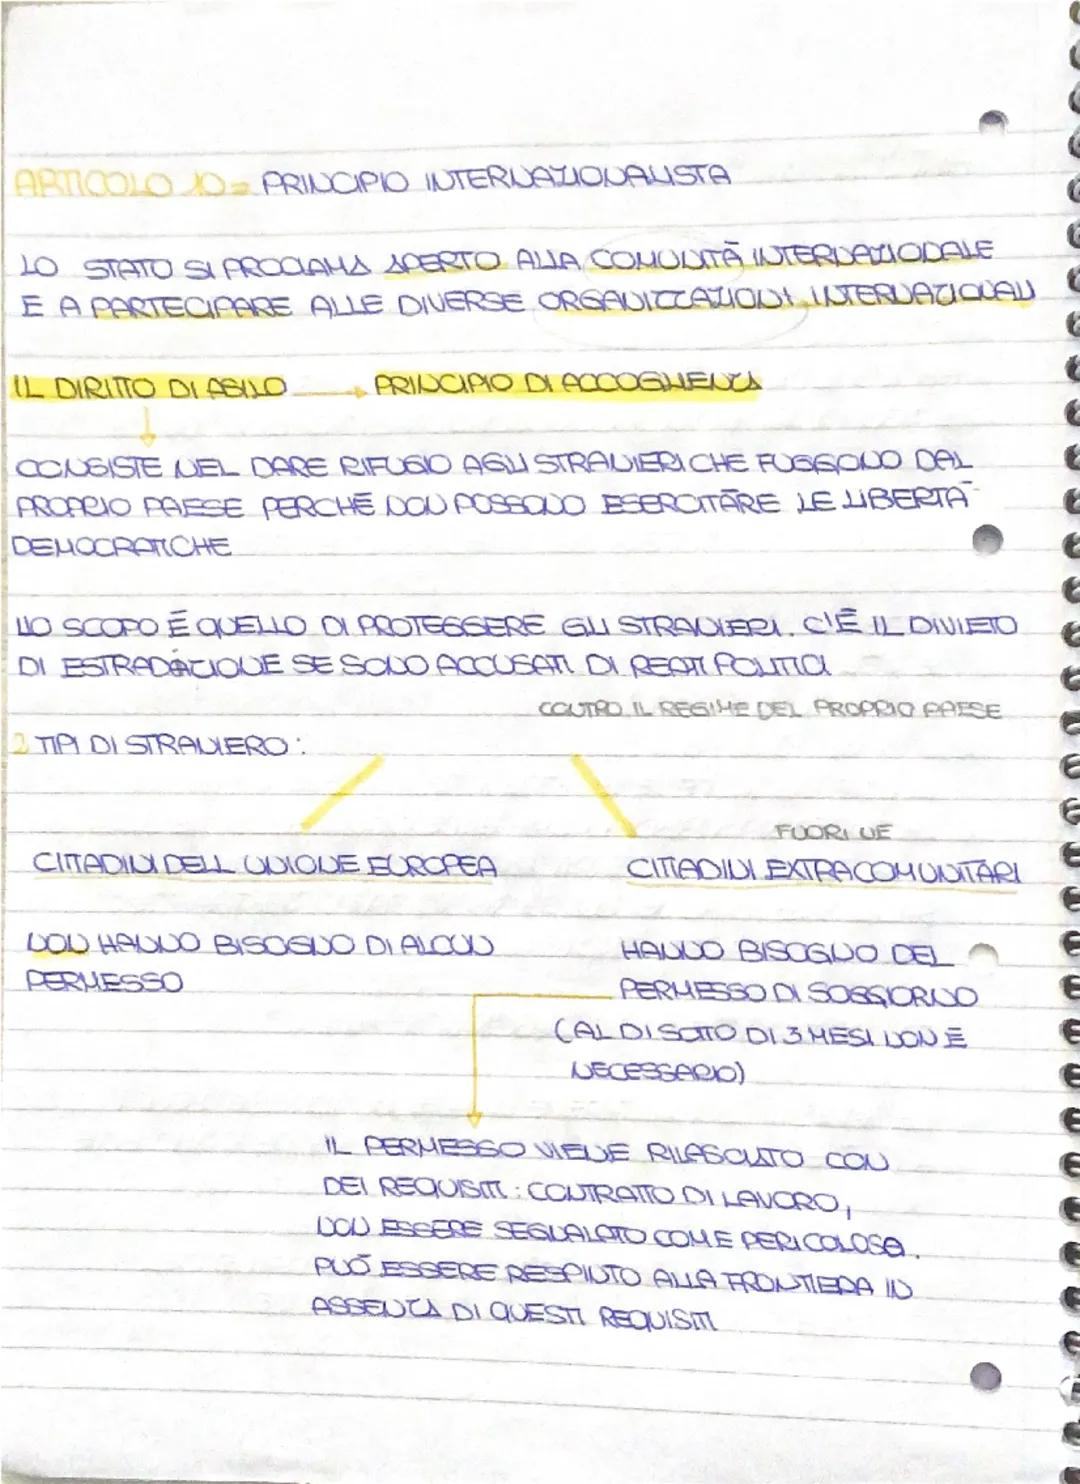 ARTICOLO 10 = PRINCIPIO INTERNAZIONALISTA
LO STATO SI PROCLAMA APERTO ALLA COMUNITÀ INTERNAZIONALE
E A PARTECIPARE ALLE DIVERSE ORGANIZZAZIONI INTERNAZIONALI
IL DIRITTO DI ASILO → PRINCIPIO DI ACCOGLIENZA
CONSISTE NEL DARE RIFUGIO AGLI STRANIERI CHE FUGGONO DAL
PROPRIO PAESE PERCHÉ NON POSSONO ESERCITARE LE LIBERTÀ
DEMOCRATICHE
LO SCOPO È QUELLO DI PROTEGGERE GLI STRANIERI. C'È IL DIVIETO
DI ESTRADAZIONE SE SONO ACCUSATI DI REATI POLITICI
CONTRO IL REGIME DEL PROPRIO PAESE
2 TIPI DI STRANIERO:
FUORI UE
CITTADINI DELL UNIONE EUROPEA CITTADINI EXTRACOMUNITARI
NON HANNO BISOGNO DI ALCUN
PERMESSO
HANNO BISOGNO DEL
PERMESSO DI SOGGIORNO
(AL DI SOTTO DI 3 MESI NON È
NECESSARIO)
IL PERMESSO VIENE RILASCIATO CON
DEI REQUISITI: CONTRATTO DI LAVORO,
NON ESSERE SEGNALATO COME PERICOLOSO.
PUÒ ESSERE RESPINTO ALLA FRONTIERA IN
ASSENZA DI QUESTI REQUISITI